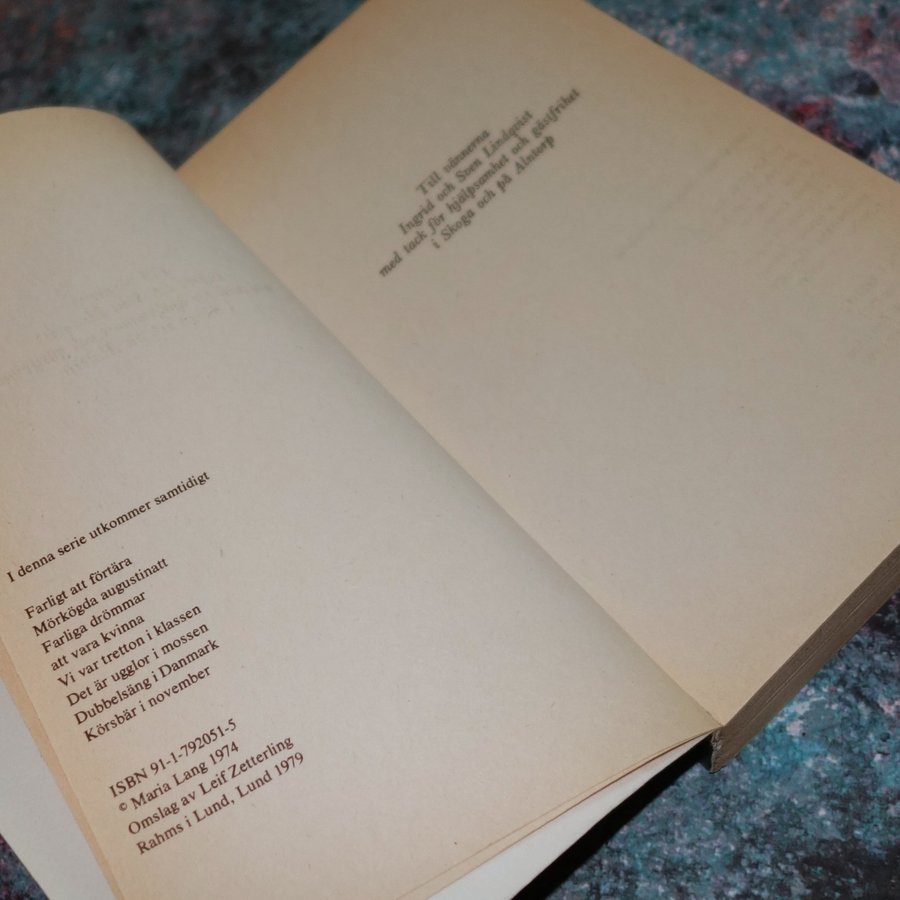 I denna serie utkommer samtidigt
Farligt att förtära
Mörkögda augustinatt
Farliga drömmar
att vara kvinna
Vi var tretton i klassen
Det är ugglor i mossen
Dubbelsäng i Danmark
Körsbär i november
ISBN 91-1-792051-5
© Maria Lang 1974
Omslag av Leif Zetterling
Rahms i Lund, Lund 1979
Till vännerna
Ingrid och Sven Lindqvist
med tack för hjälpsamhet och gästfrihet
i Skoga och på Alntorp